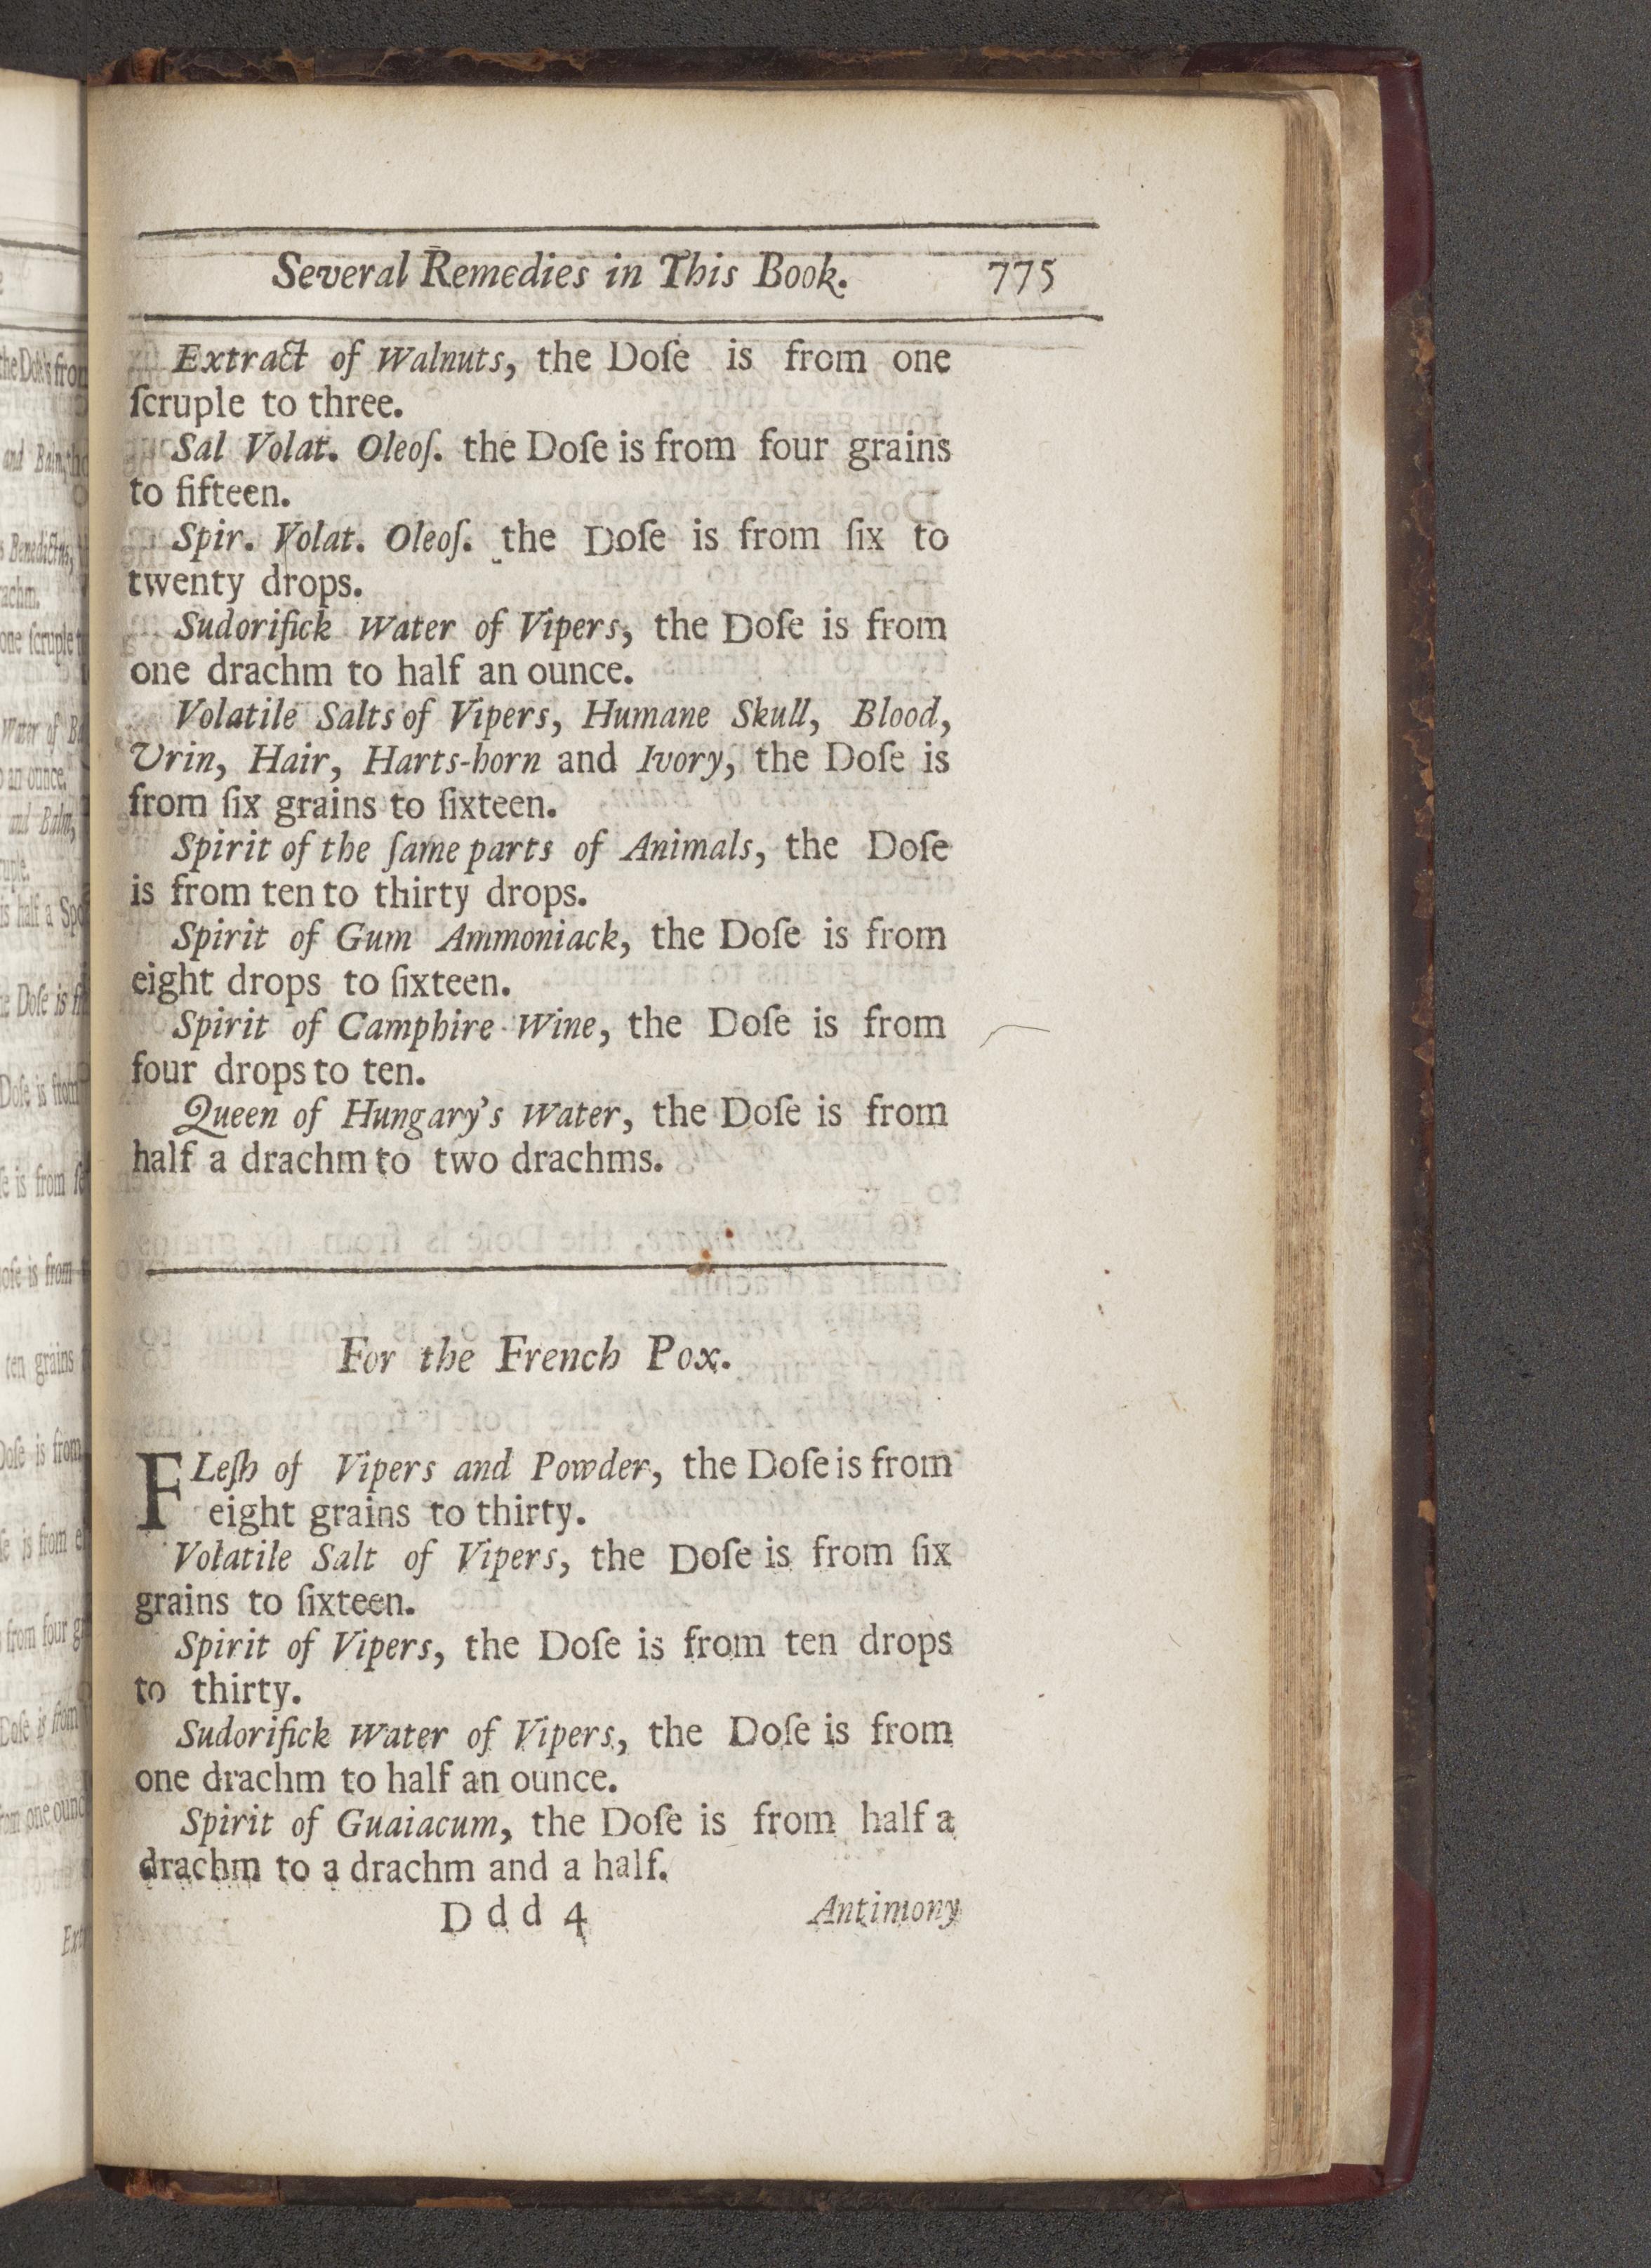 Several Remedies in This Book. 775
Extract of Walnuts, the Doſe is from one
ſcruple to three.
Sal Volat. Oleoſ. the Doſe is from four grains
to fifteen.
Spir. Volat. Oleoſ. the Doſe is from ſix to
twenty drops.
Sudorifick Water of Vipers, the Doſe is from
one drachm to half an ounce.
Volatile Salts of Vipers, Humane Skull, Blood,
Urin, Hair, Harts-horn and Ivory, the Doſe is
from ſix grains to ſixteen.
Spirit of the ſame parts of Animals, the Doſe
is from ten to thirty drops.
Spirit of Gum Ammoniack, the Doſe is from
eight drops to ſixteen.
Spirit of Camphire Wine, the Doſe is from
four drops to ten.
Queen of Hungary's Water, the Doſe is from
half a drachm to two drachms.
For the French Pox.
FLeſh of Vipers and Powder, the Doſe is from
eight grains to thirty.
Volatile Salt of Vipers, the Doſe is from ſix
grains to ſixteen.
Spirit of Vipers, the Doſe is from ten drops
to thirty.
Sudorifick Water of Vipers, the Doſe is from
one drachm to half an ounce.
Spirit of Guaiacum, the Doſe is from half a
drachm to a drachm and a half.
Ddd 4 Antimony